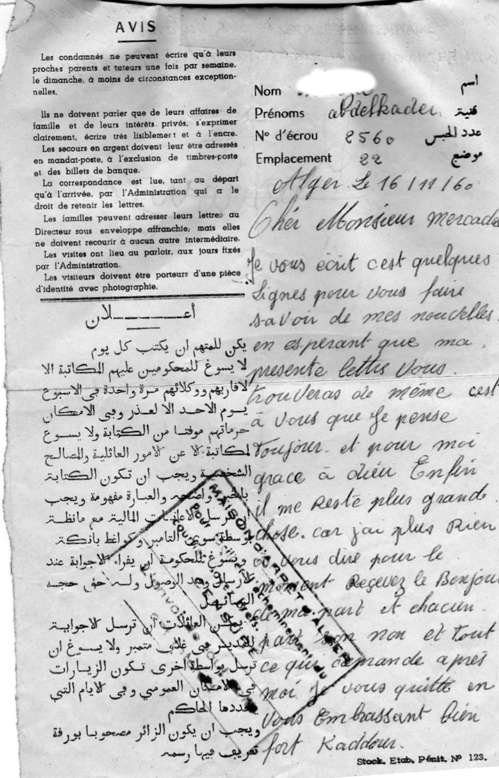 AVIS
Les condamnés ne peuvent écrire qu'à leurs
proches parents et tuteurs une fois par semaine,
le dimanche, à moins de circonstances exception-
nelles.
Ils ne doivent parler que de leurs affaires de
famille et de leurs intérêts privés, s'exprimer
clairement, écrire très lisiblement et à l'encre.
Les secours en argent doivent leur être adressés
en mandat-poste, à l'exclusion de timbres-poste
et des billets de banque.
La correspondance est lue, tant au départ
qu'à l'arrivée, par l'Administration qui a le
droit de retenir les lettres.
Les familles peuvent adresser leurs lettres au
Directeur sous enveloppe affranchie, mais elles
ne doivent recourir à aucun autre intermédiaire.
Les visites ont lieu au parloir, aux jours fixés
par l'Administration.
Les visiteurs doivent être porteurs d'une pièce
d'identité avec photographie.
أعـــلان
يكن للمتهم ان يكتب كل يوم
لا يسوغ للمحكوميين عليهم المكاتبة الا
لاقاربهم ووكلائهم مرة واحدة في الاسبوع
يوم الاحد الا لعذر وفي الامكان
حرماتهم موقتا من الكتابة ولا يسوغ
المكاتبة الا عن الامور العائلية والمصالح
الشخصية ويجب ان تكون الكتابة
واضحة والعبارة مفهومة ويجب
المالية مع
بوسطة سوى
ويسوغ للحكومة ان يقرا الاجوبة عند
الوصول
العائلات ان ترسل
ولا يسوغ ان
ترسل بواسطة اخرى تكون الزيارات
العمومي وفي الايام التي
يحددها الحاكم
ويجب ان يكون الزائر مصحوبا بورقة
تعريف فيها رسمه
Nom اسم
Prénoms abdelkader كنية
N° d'écrou 2560 عدد الحبس
Emplacement 22 موضع
Alger Le 16/11/60
Cher Monsieur Mercade
Je vous écrit c'est quelques
lignes pour vous faire
savoir de mes nouvelles
en esperant que ma
présente lettre vous
trouveras de même c'est
à vous que je pense
toujour. et pour moi
grace à dieu Enfin
il me reste plus grande
chose. car j'ai plus rien
a vous dire pour le
moment Reçevez le Bonjour
de ma part et chacun.
part son non et tout
ce qui demande après
moi Je vous quitte en
vous Embrassant bien
fort Kaddour.
MAISON D'ARRÊT ALGER
Stock. Etab. Pénit. N° 123.